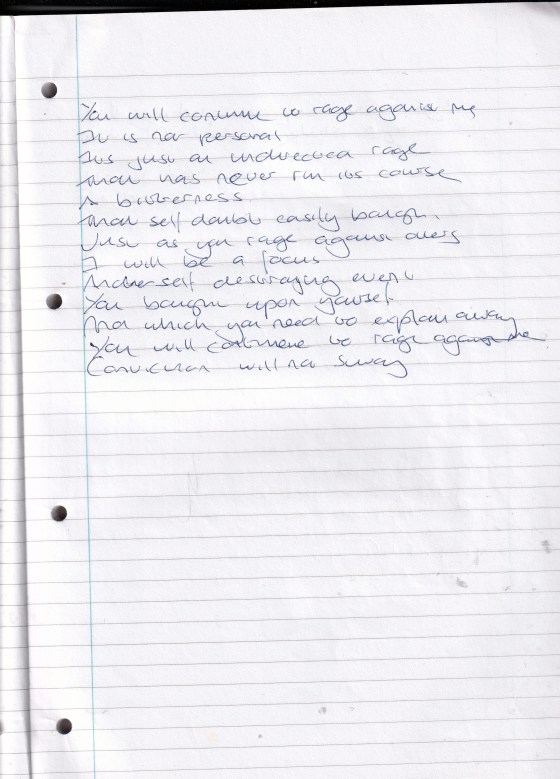 You will continue to rage against me
It is not personal
Its just an undirected rage
That has never run its course
A bitterness
That self doubt easily bought.
Just as you rage against others
I will be a focus
Another self destroying event
You bought upon yourself.
And which you need to explain away
You will continue to rage against me
Conviction will not sway